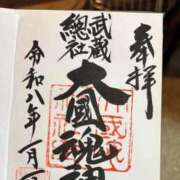 奉拝
武蔵
總社
大國魂神
令和八年一月一